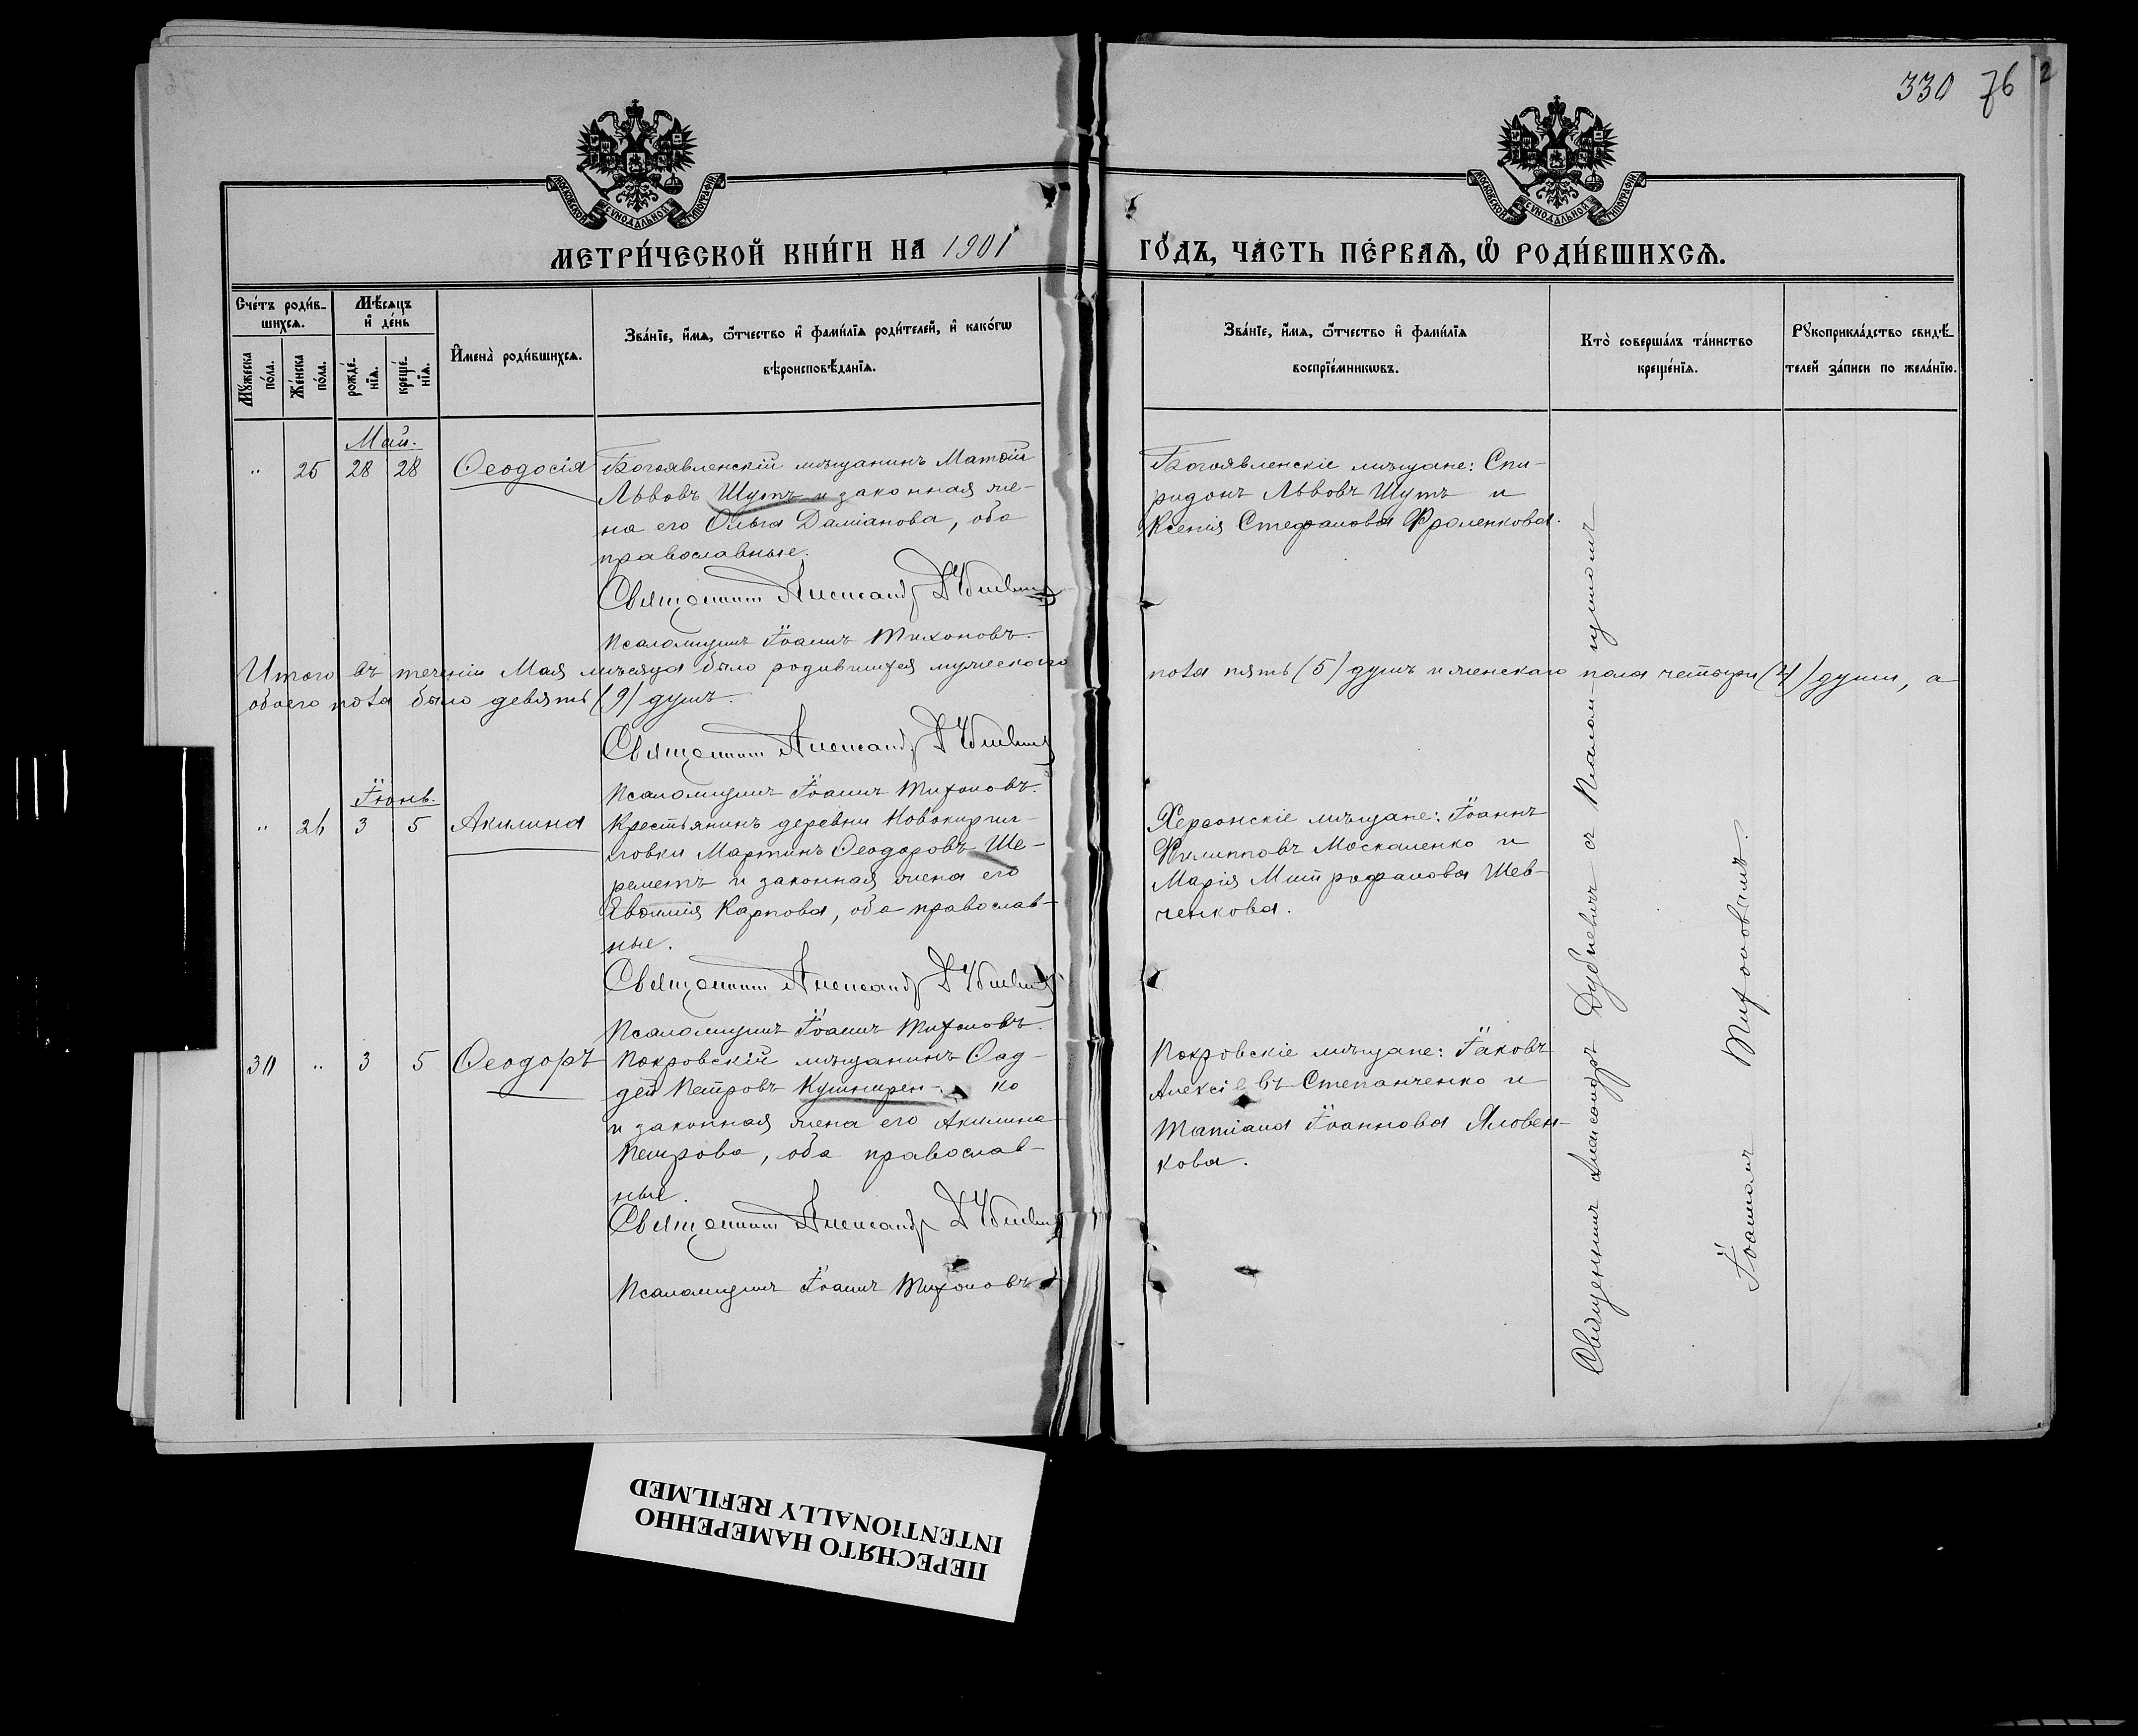 330 76 2
МОСКОВСКОЙ СѴНОДАЛЬНОЙ ТИПОГРАФІИ
МОСКОВСКОЙ СѴНОДАЛЬНОЙ ТИПОГРАФІИ
МЕТРИ́ЧЕСКОЙ КНИ́ГИ НА 1901 ГО́ДЪ, ЧА́СТЬ ПЕ́РВАѦ, Ѡ҆ РОДИ́ВШИХСѦ.
Сче́тъ роди́в-
шихсѧ.
Мѣ́сѧцъ
и҆ де́нь
Мꙋ́жеска
по́ла.
Же́нска
по́ла.
рожде́-
нїѧ.
креще́-
нїѧ.
И҆мена̀ роди́вшихсѧ.
Зва́нїе, и҆́мѧ, ѻ҆́тчество и҆ фами́лїѧ роди́телей, и҆ како́гѡ
вѣроисповѣ́данїѧ.
Зва́нїе, и҆́мѧ, ѻ҆́тчество и҆ фами́лїѧ
воспрїе́мникѡвъ.
Кто̀ соверша́лъ та́инство
креще́нїѧ.
Рꙋкоприкла́дство свидѣ́-
телей за́писи по жела́нїю.
Май.
" 25 28 28 Ѳеодосія
Богоявленскій мѣщанинъ Матѳій
Львовъ Шутъ и законная же-
на его Ольга Даміанова, оба
православные.
Священник Александр
Псаломщикъ Іоаннъ Тихоновъ.
Богоявленскіе мѣщане: Спи-
ридонъ Львовъ Шутъ и
Ксенія Стефанова Фроленкова.
Итого въ теченіи Мая мѣсяца было родившихся мужескаго пола пять (5) душъ и женскаго пола четыре (4) души, а
обоего пола было девять (9) душъ.
Священник Александр
Псаломщикъ Іоаннъ Тихоновъ.
Іюнь.
" 26 3 5 Акилина
Крестьянинъ деревни Новокирил-
ловки Мартинъ Ѳеодоровъ Ше-
реметъ и законная жена его
Евѳимія Карпова, оба православ-
ные.
Священник Александр
Псаломщикъ Іоаннъ Тихоновъ.
Херсонскіе мѣщане: Іоаннъ
Филипповъ Москаленко и
Марія Митрофанова Шев-
ченкова.
30 " 3 5 Ѳеодоръ
Покровскій мѣщанинъ Ѳад-
дей Петровъ Кушнирен- ко
и законная жена его Акилина
Петрова, оба православ-
ные.
Священник Александр
Псаломщикъ Іоаннъ Тихоновъ
Покровскіе мѣщане: Іаковъ
Алексіевъ Степанченко и
Татіана Іоаннова Яловен-
кова.
Священникъ Александръ Дубневичъ съ Псалом-щикомъ
Іоанномъ Тихоновымъ.
ПЕРЕСНЯТО НАМЕРЕННО
INTENTIONALLY REFILMED